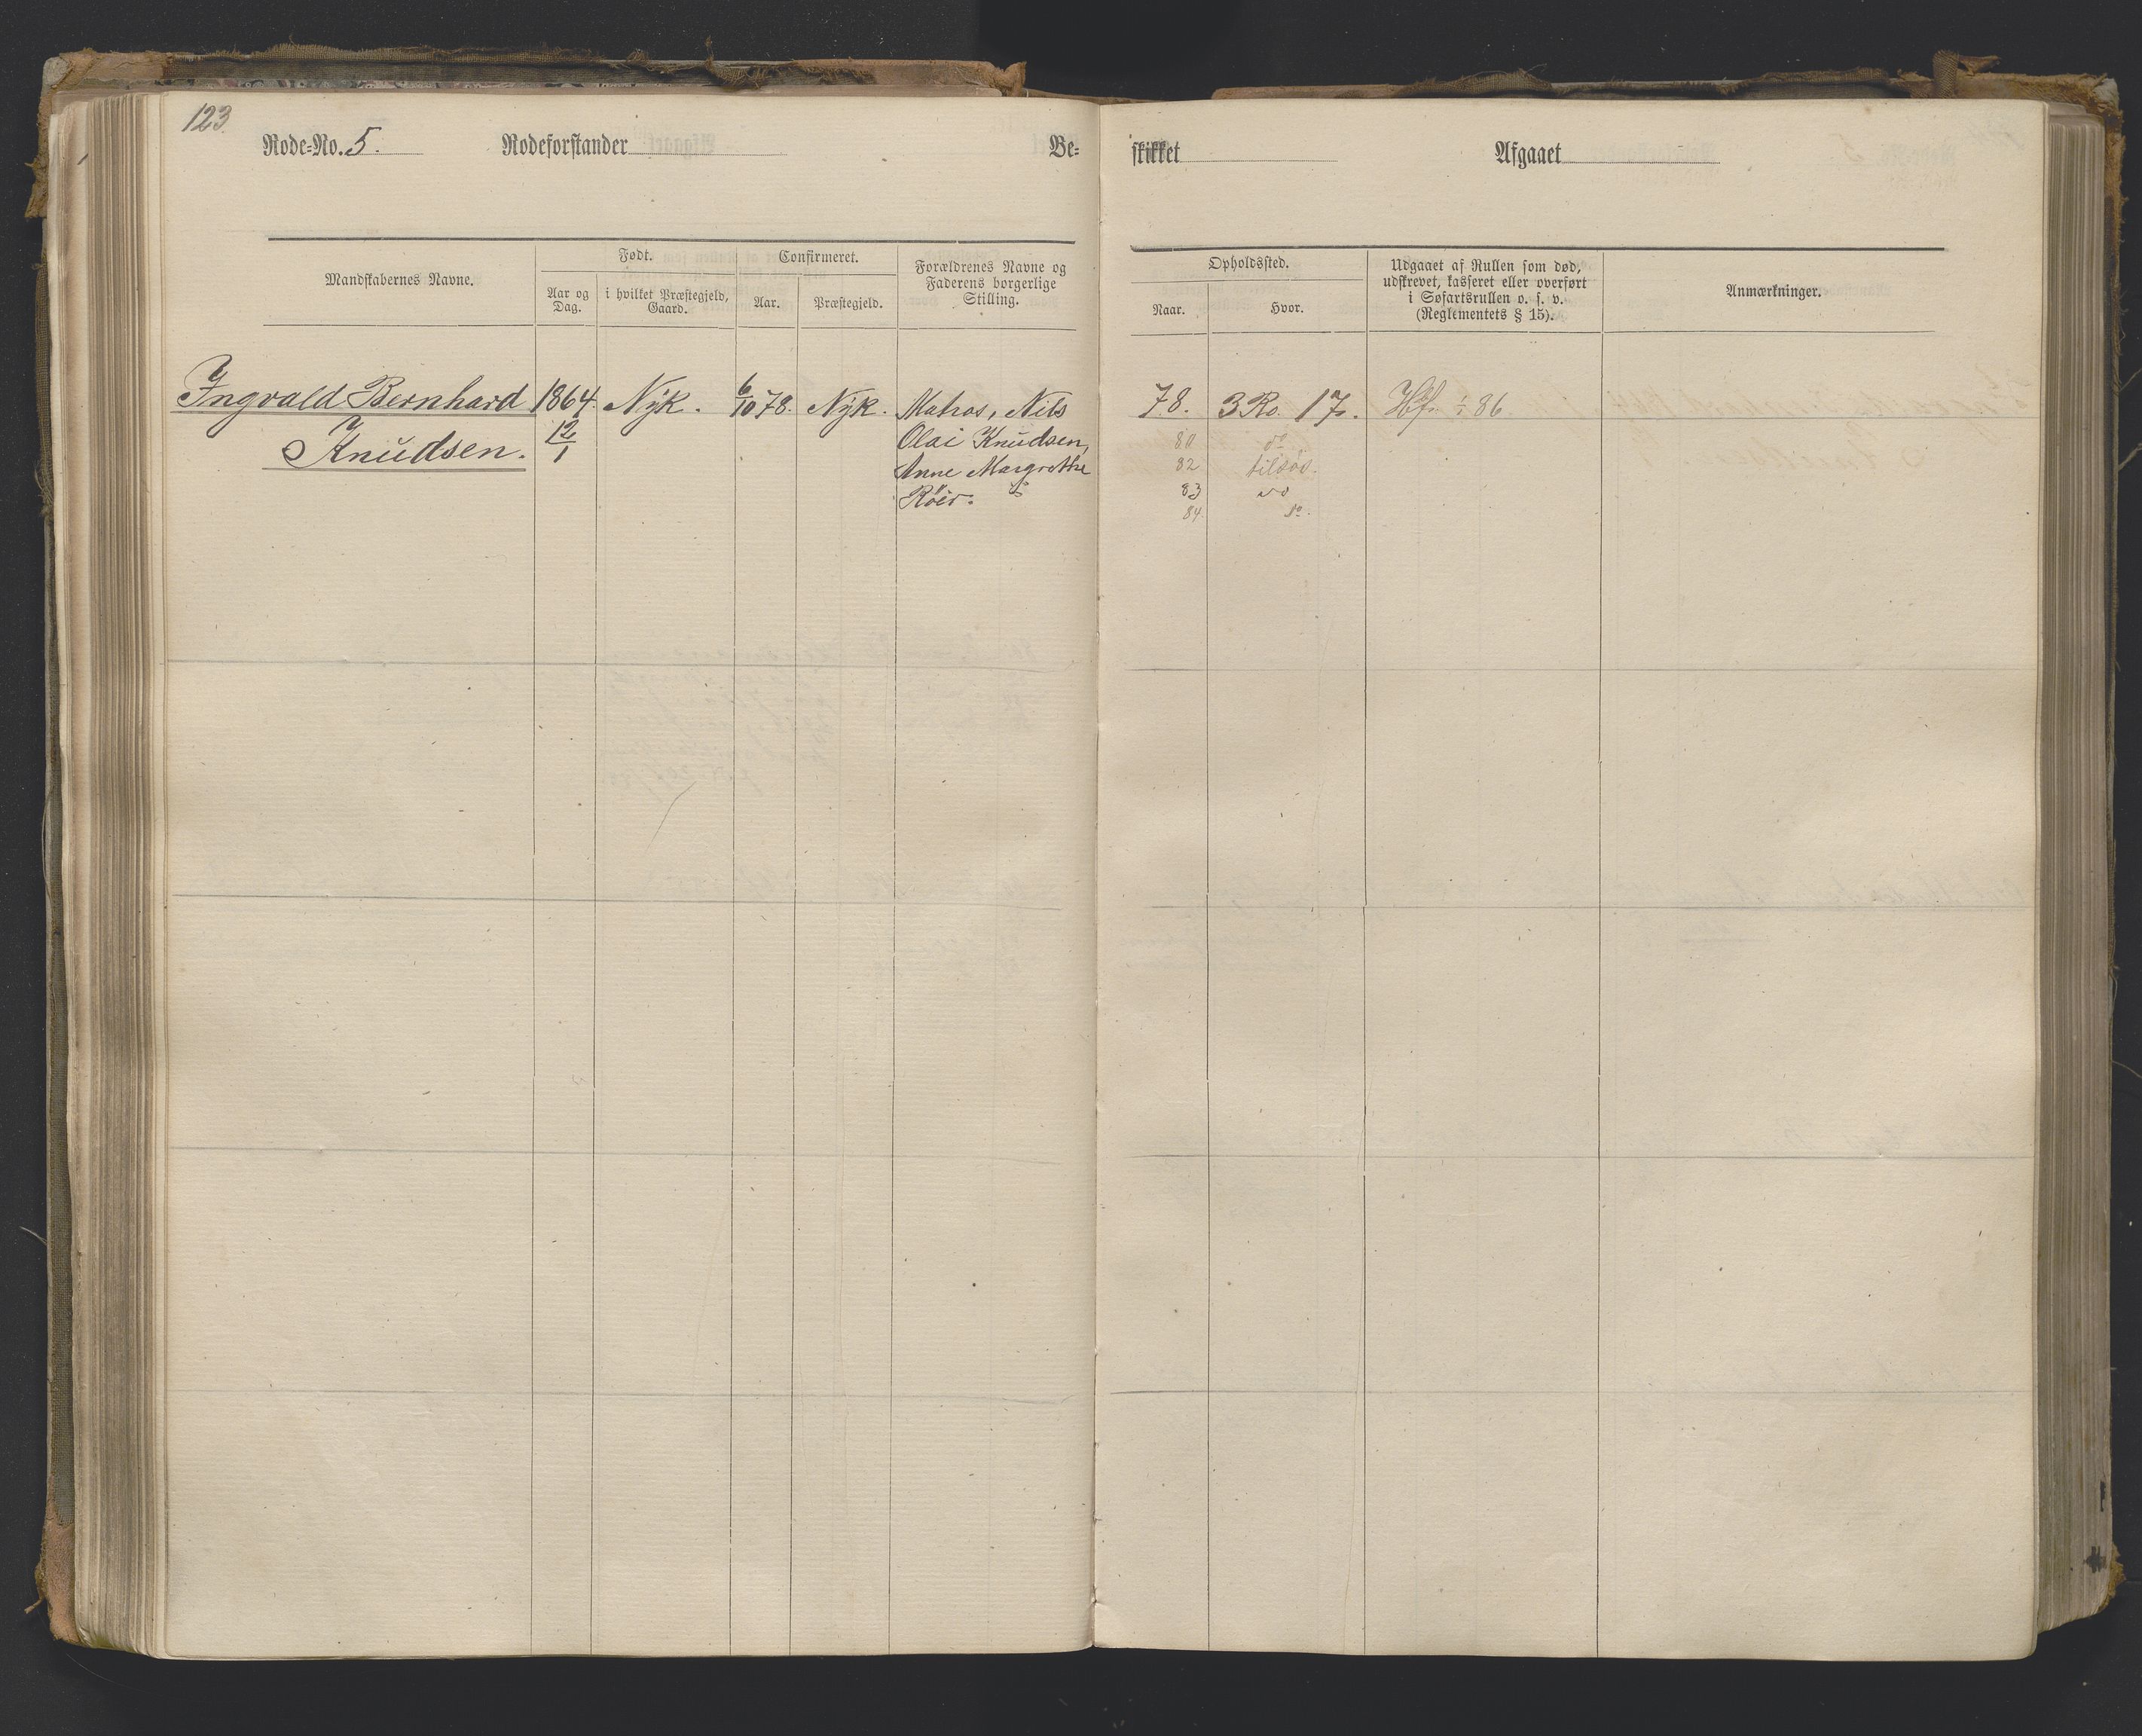 123
Rode-No. 5. Rodeforstander Be-
skikket Afgaaet
Mandskabernes Navne.
Født.
Aar og
Dag.
i hvilket Præstegjeld,
Gaard.
Confirmeret.
Aar.
Præstegjeld.
Forældrenes Navne og
Faderens borgerlige
Stilling.
Opholdssted.
Naar.
Hvor.
Udgaaet af Rullen som død,
udskrevet, kasseret eller overført
i Søfartsrullen o. s. v.
(Reglementets § 15).
Anmærkninger.
Ingvald Bernhard
Knudsen.
1864.
12/1
Nyk.
6/10 78.
Nyk.
Matros, Nils
Olai Knudsen,
Anne Margrethe
Röer.
78. 3 Ro. 17.
80 do
82 tilsøs.
83 do
84. do.
86